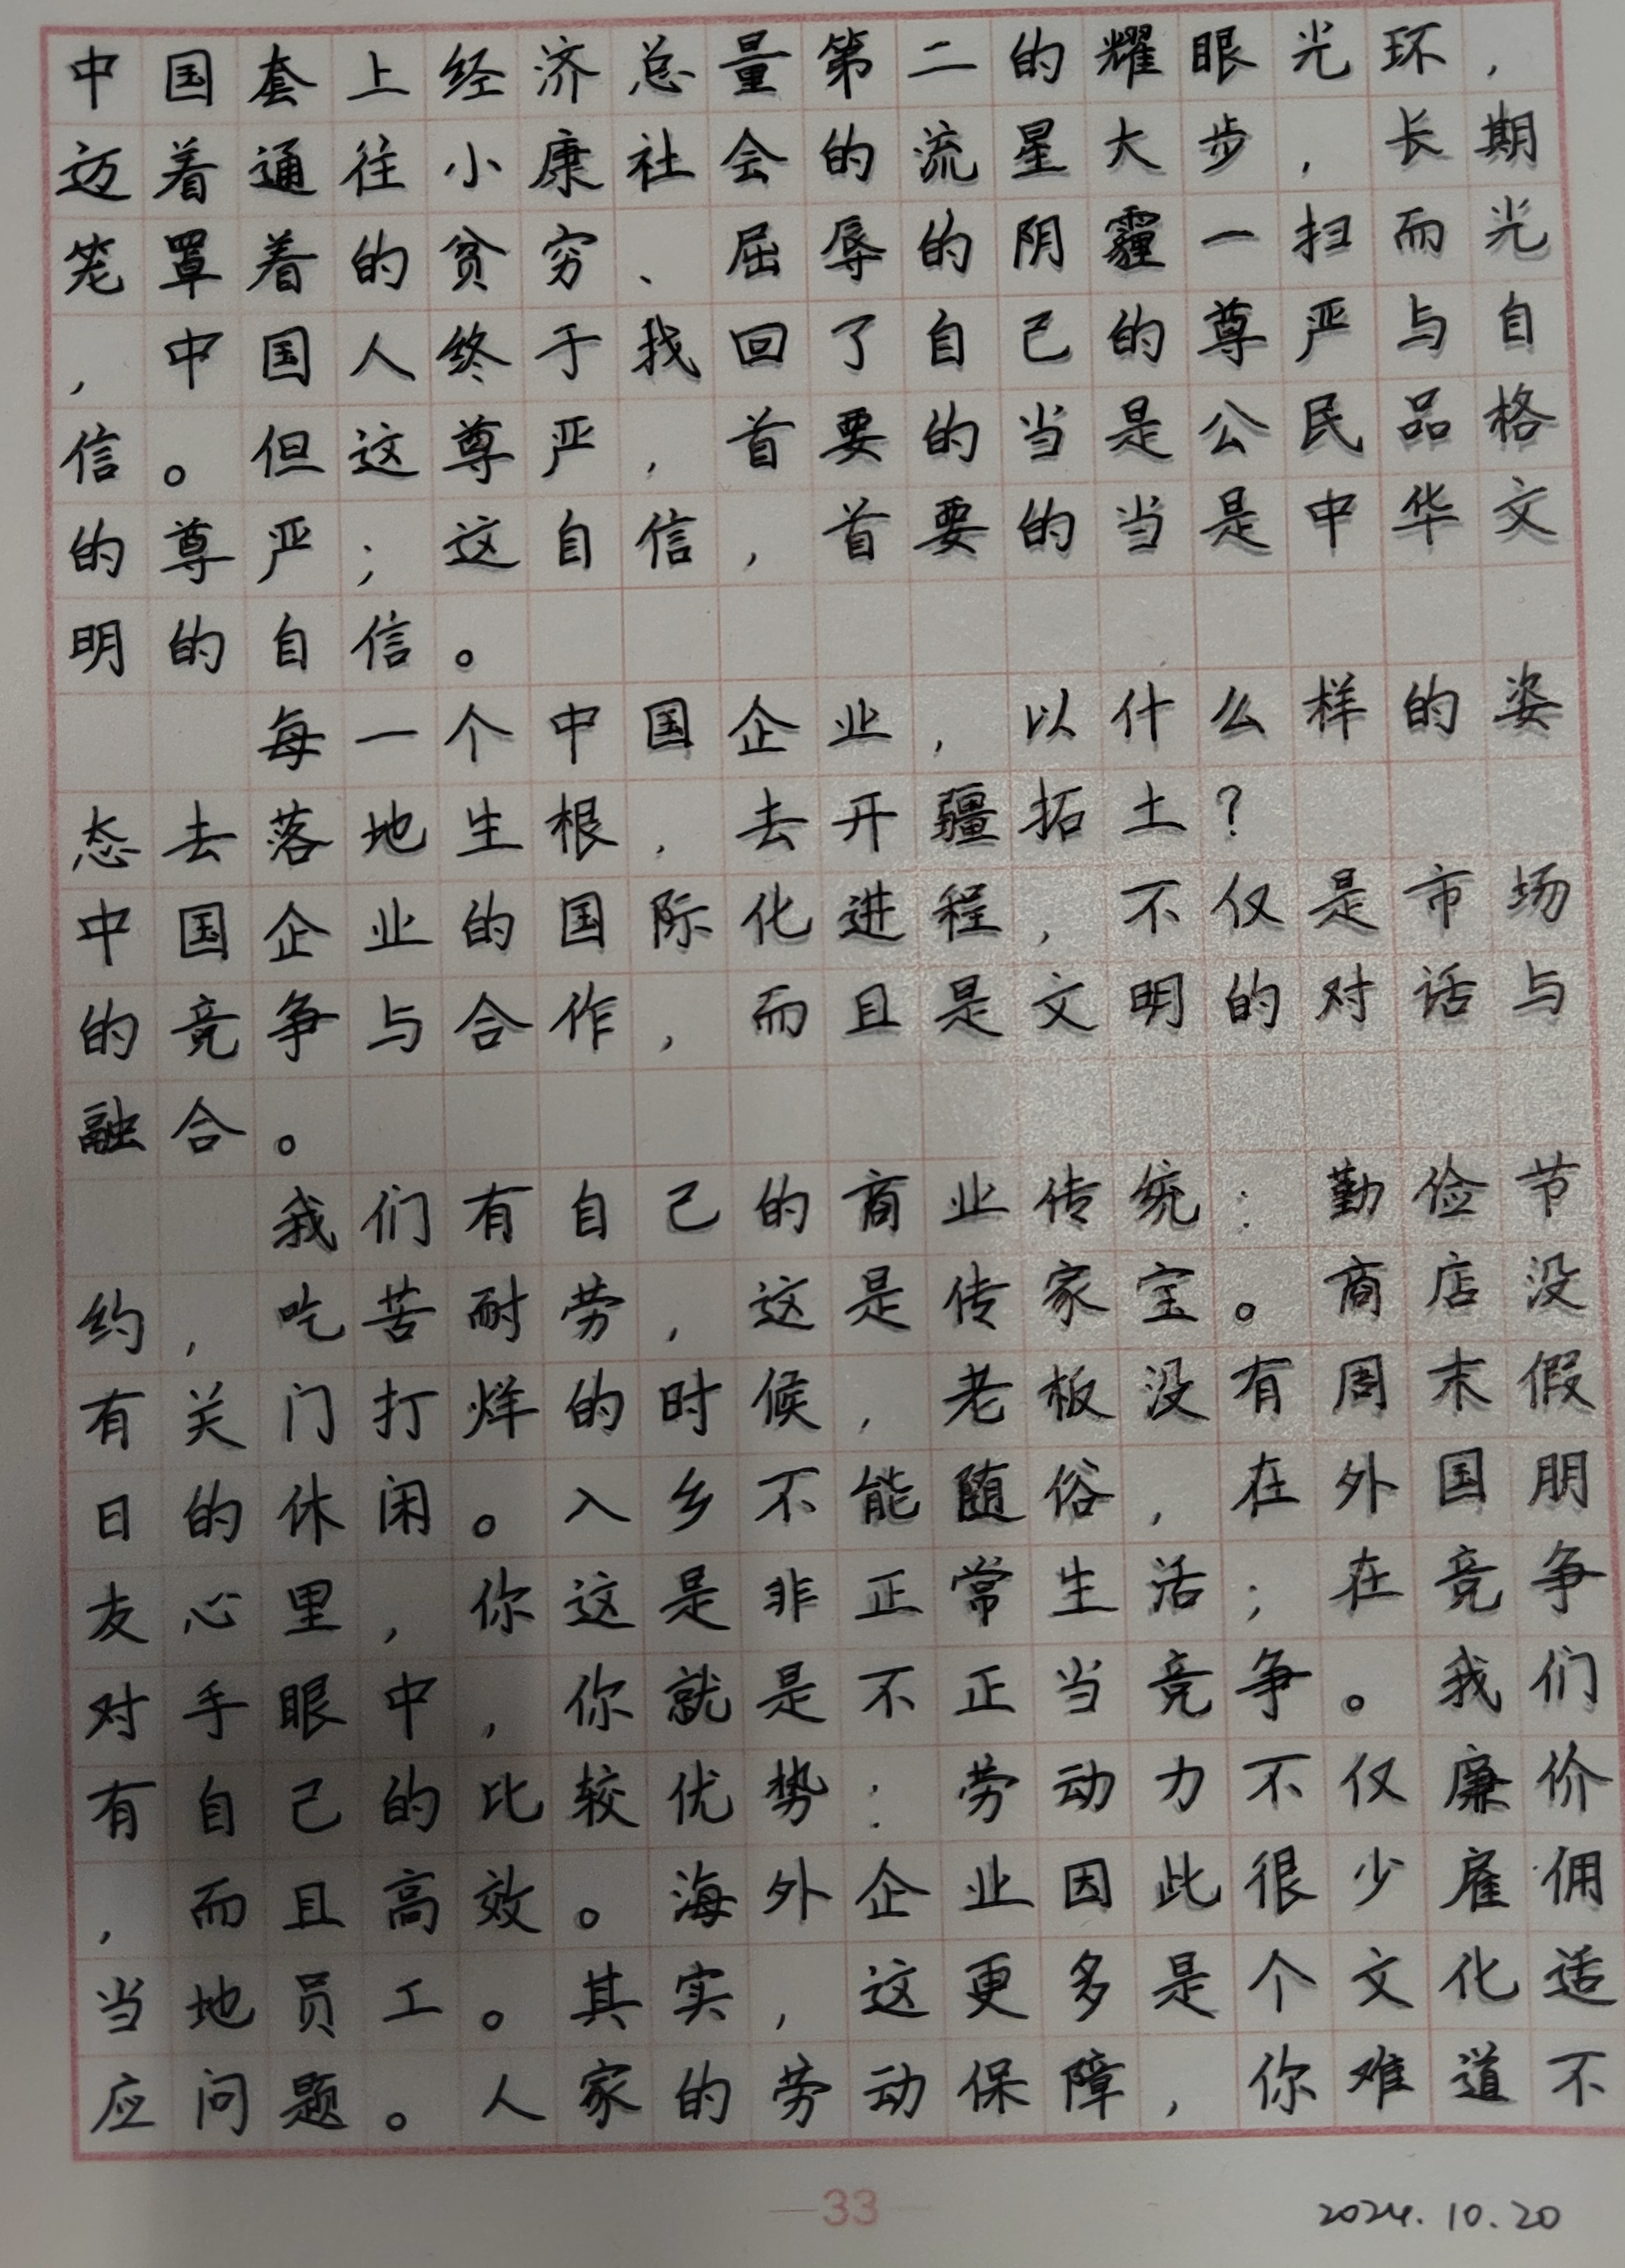 中国套上经济总量第二的耀眼光环，
迈着通往小康社会的流星大步，长期
笼罩着的贫穷、屈辱的阴霾一扫而光
，中国人终于找回了自己的尊严与自
信。但这尊严，首要的当是公民品格
的尊严；这自信，首要的当是中华文
明的自信。
每一个中国企业，以什么样的姿
态去落地生根，去开疆拓土？
中国企业的国际化进程，不仅是市场
的竞争与合作，而且是文明的对话与
融合。
我们有自己的商业传统：勤俭节
约，吃苦耐劳，这是传家宝。商店没
有关门打烊的时候，老板没有周末假
日的休闲。入乡不能随俗，在外国朋
友心里，你这是非正常生活；在竞争
对手眼中，你就是不正当竞争。我们
有自己的比较优势：劳动力不仅廉价
，而且高效。海外企业因此很少雇佣
当地员工。其实，这更多是个文化适
应问题。人家的劳动保障，你难道不
33
2024.10.20